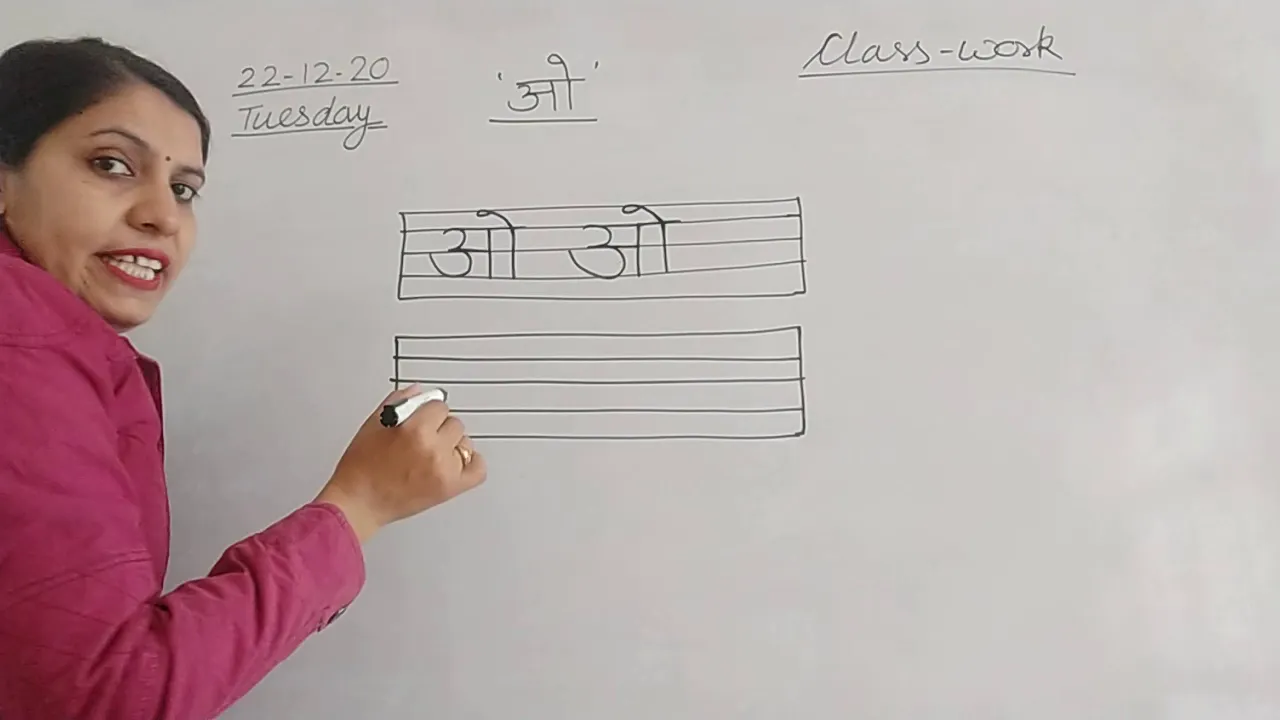 22-12-20
Tuesday
'ओ'
Class-work
ओ ओ